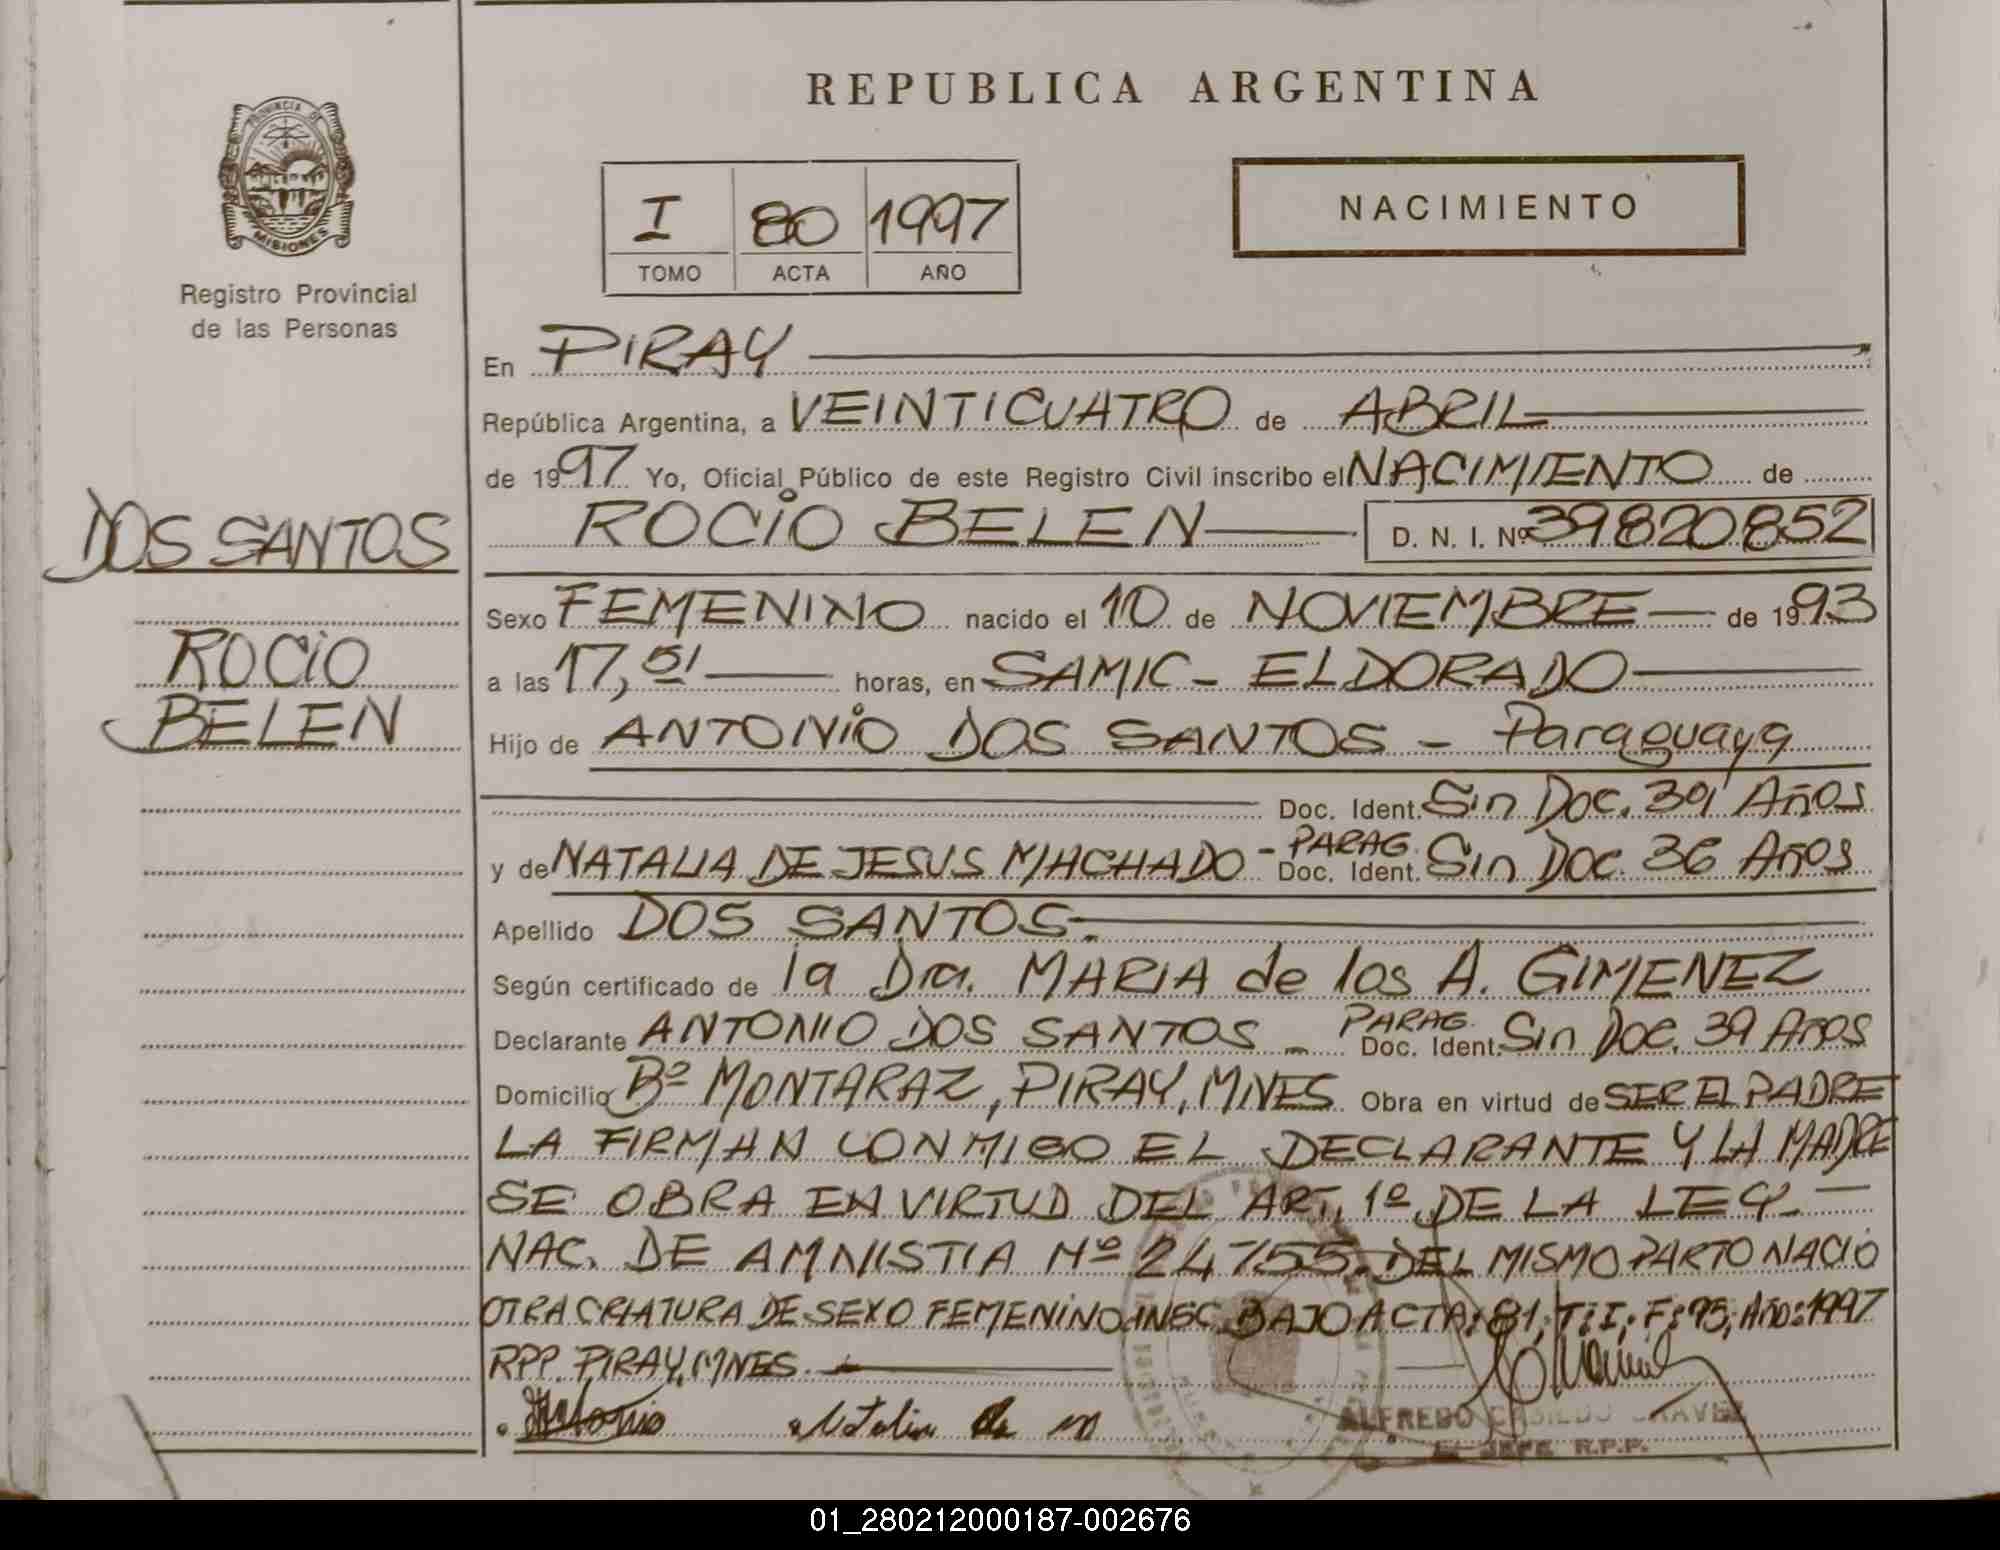 REPUBLICA ARGENTINA
PROVINCIA DE
MISIONES
Registro Provincial
de las Personas
I 80 1997
TOMO ACTA AÑO
NACIMIENTO
En PIRAY
República Argentina, a VEINTICUATRO de ABRIL
de 1997 Yo, Oficial Público de este Registro Civil inscribo el NACIMIENTO de
ROCIO BELEN D. N. I. Nº 39820852
DOS SANTOS
ROCIO
BELEN
Sexo FEMENINO nacido el 10 de NOVIEMBRE de 1993
a las 17,51 horas, en SAMIC - ELDORADO
Hijo de ANTONIO DOS SANTOS - Paraguaya
Doc. Ident. Sin Doc. 39 Años
y de NATALIA DE JESUS MACHADO - PARAG. Doc. Ident. Sin Doc. 36 Años
Apellido DOS SANTOS.
Según certificado de la Dra. MARIA de los A. GIMENEZ
Declarante ANTONIO DOS SANTOS - PARAG. Doc. Ident. Sin Doc. 39 Años
Domicilio Bº MONTARAZ, PIRAY, MNES Obra en virtud de SER EL PADRE
LA FIRMAN CONMIGO EL DECLARANTE Y LA MADRE
SE OBRA EN VIRTUD DEL ART. 1º DE LA LEY -
NAC. DE AMNISTIA Nº 24755. DEL MISMO PARTO NACIO
OTRA CRIATURA DE SEXO FEMENINO INSC. BAJO ACTA: 81, T: I, F: 95, Año: 1997
RPP. PIRAY, MNES.
Antonio Natalia de m
ALFREDO CASILDO CHAVEZ
JEFE R.P.P.
01_280212000187-002676